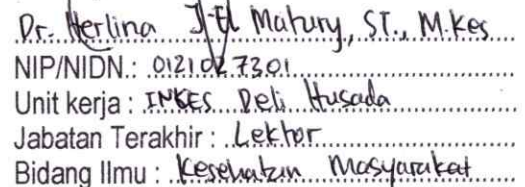 Dr. Herlina J. El Matury, ST., M.Kes
NIP/NIDN.: 0121027301
Unit kerja : INKES Deli Husada
Jabatan Terakhir : Lektor
Bidang Ilmu : Kesehatan Masyarakat